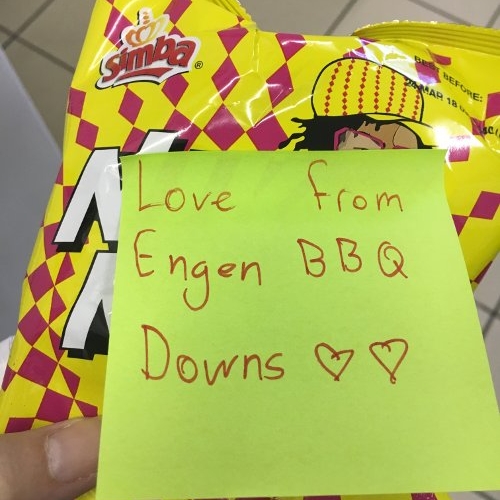 Simba®
BEST BEFORE:
MAR 18
Love from
Engen BBQ
Downs ♡♡